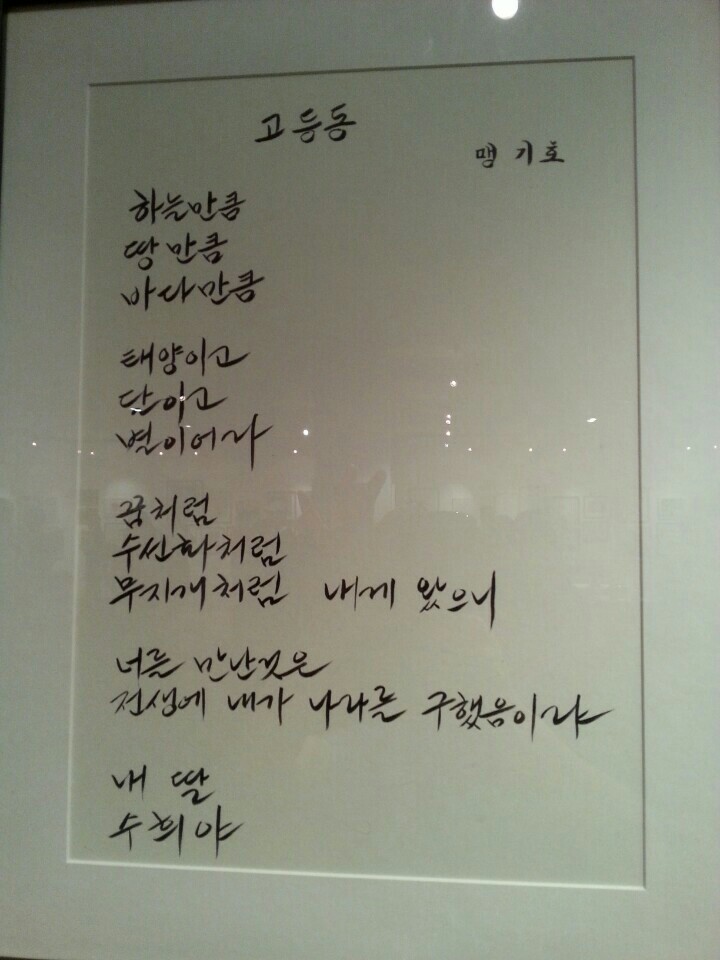 고등동
맹 기호
하늘만큼
땅만큼
바다만큼
태양이고
달이고
별이어라
꿈처럼
수선화처럼
무지개처럼 내게 왔으니
너를 만난것은
전생에 내가 나라를 구했음이라
내 딸
수희야